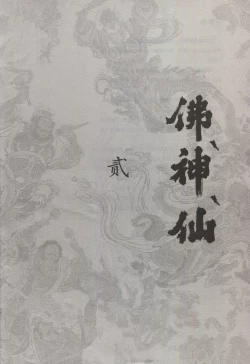 佛、神、仙
贰